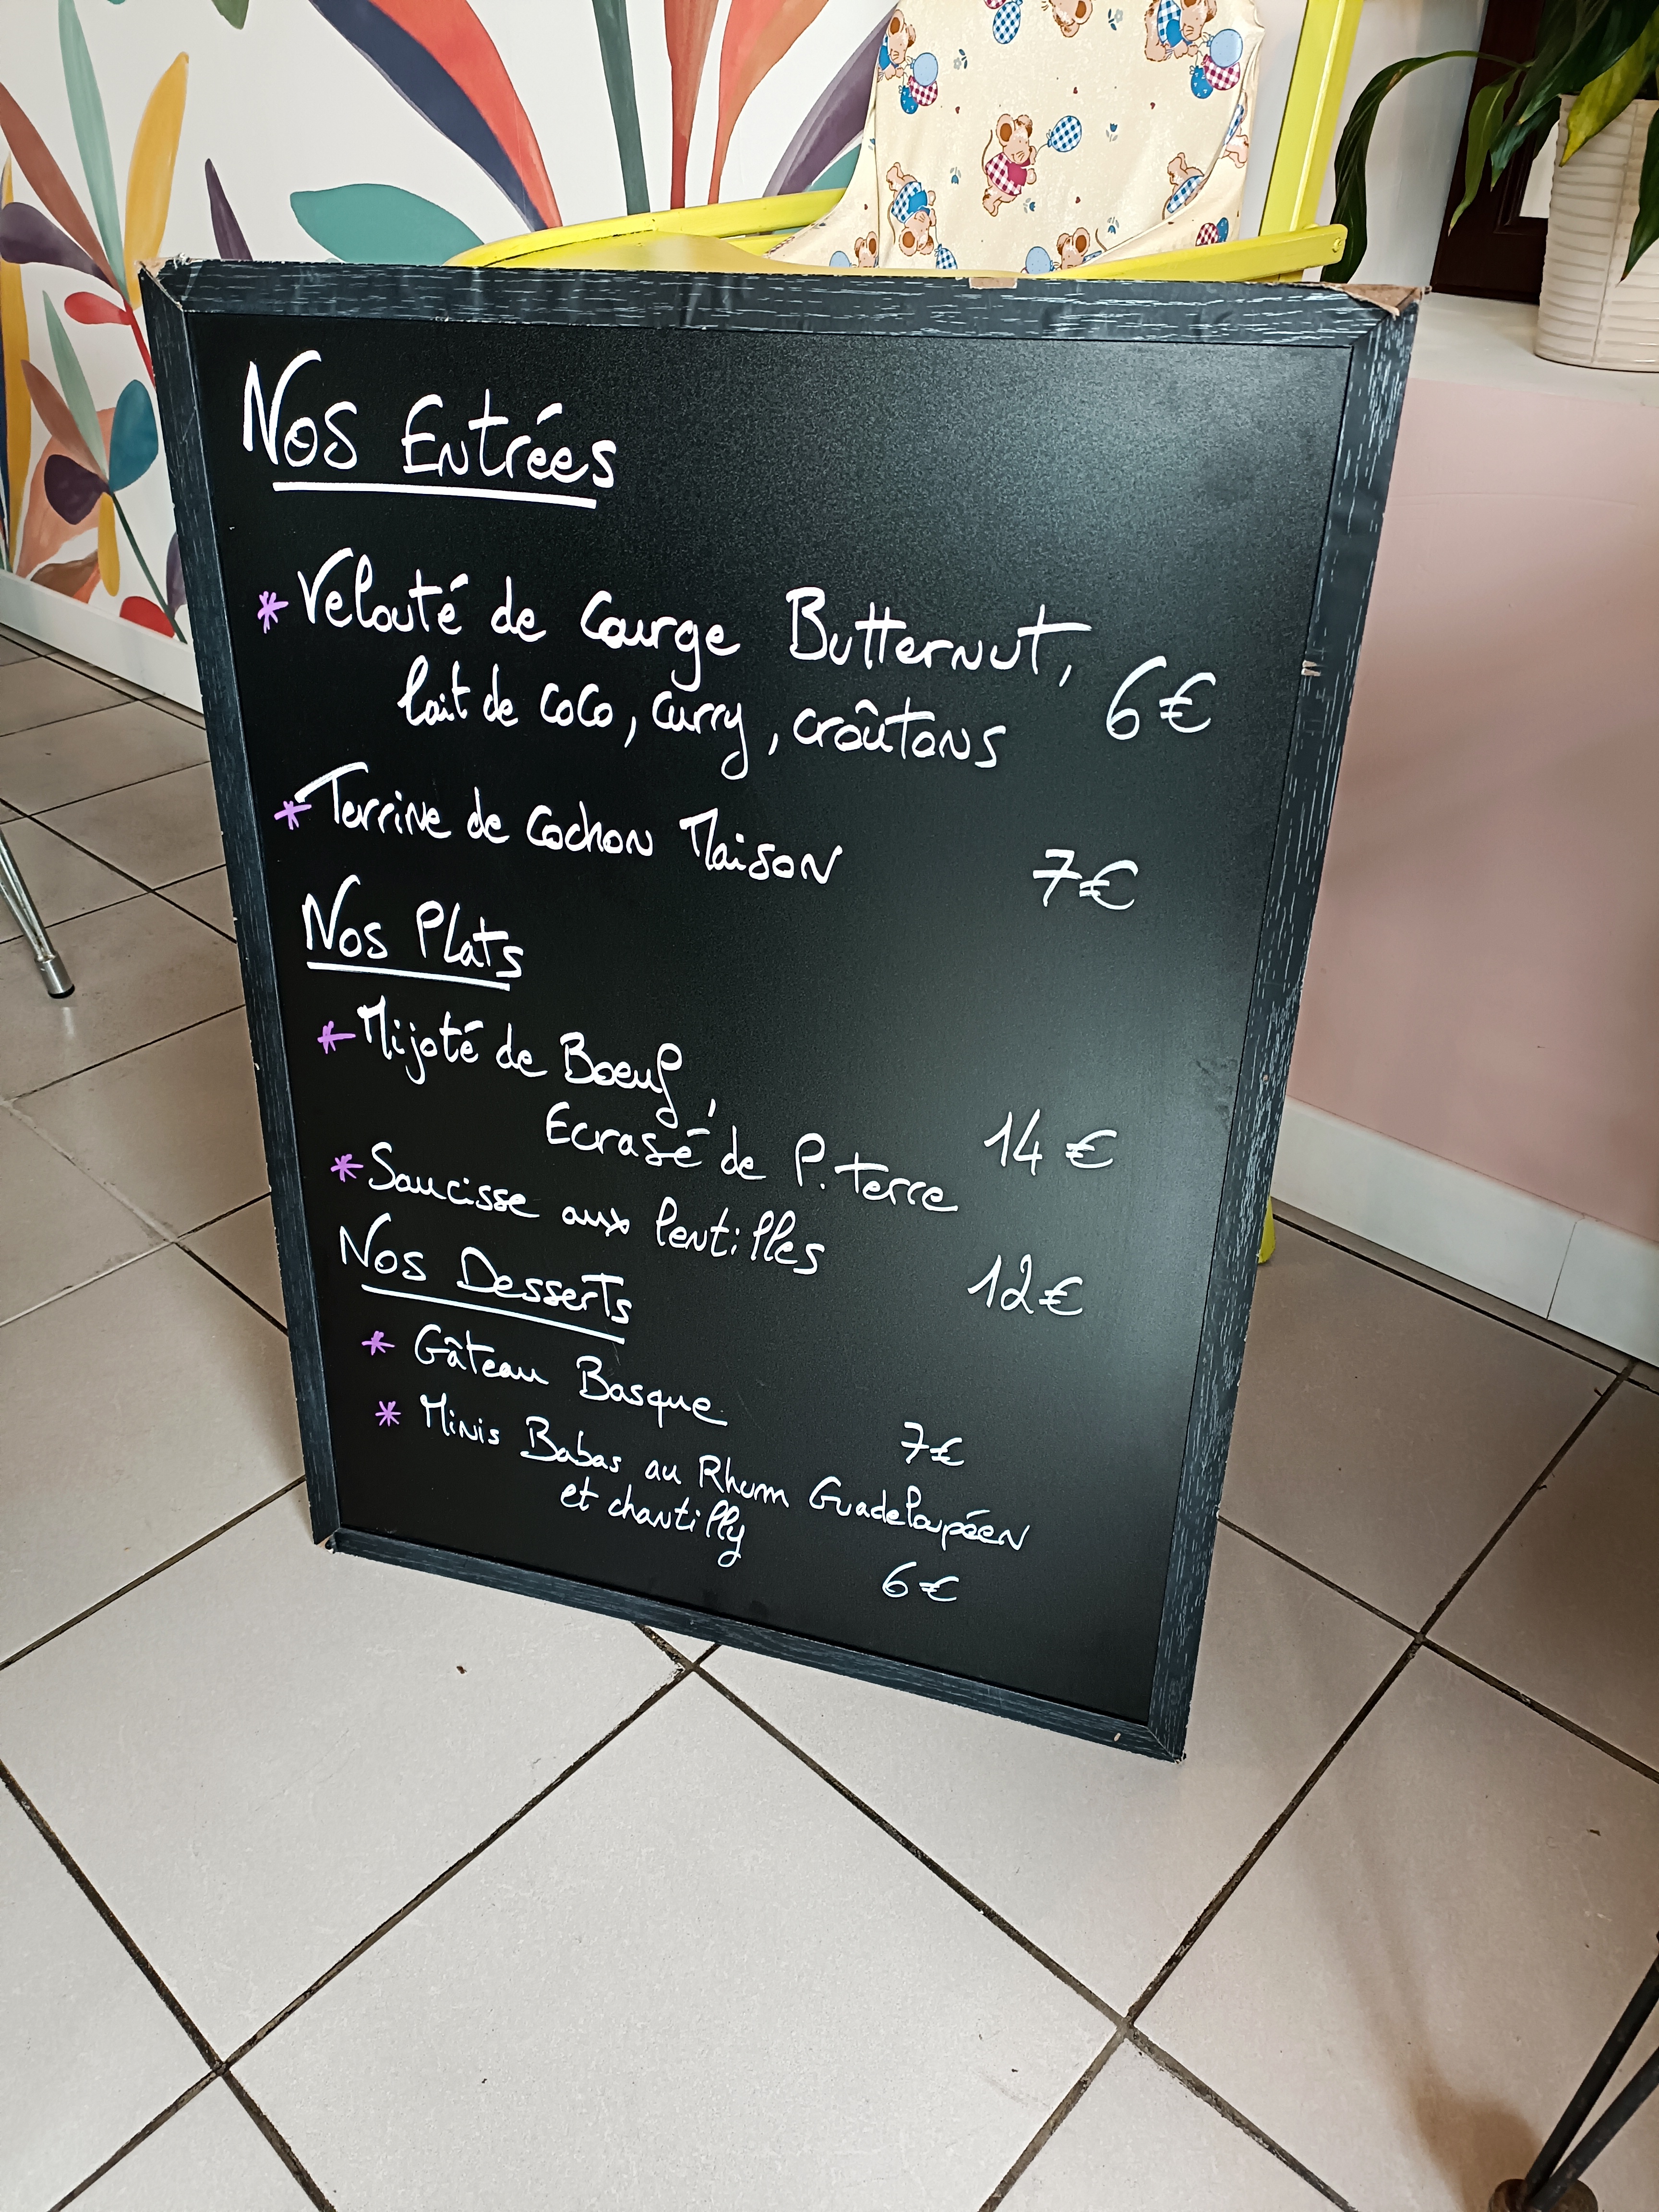 Nos Entrées
* Velouté de Courge Butternut,
lait de coco, curry, croûtons 6€
* Terrine de Cochon Maison 7€
Nos Plats
* Mijoté de Boeuf,
Ecrasé de P. terre 14€
* Saucisse aux lentilles 12€
Nos Desserts
* Gâteau Basque 7€
* Minis Babas au Rhum Guadeloupéen
et chantilly 6€